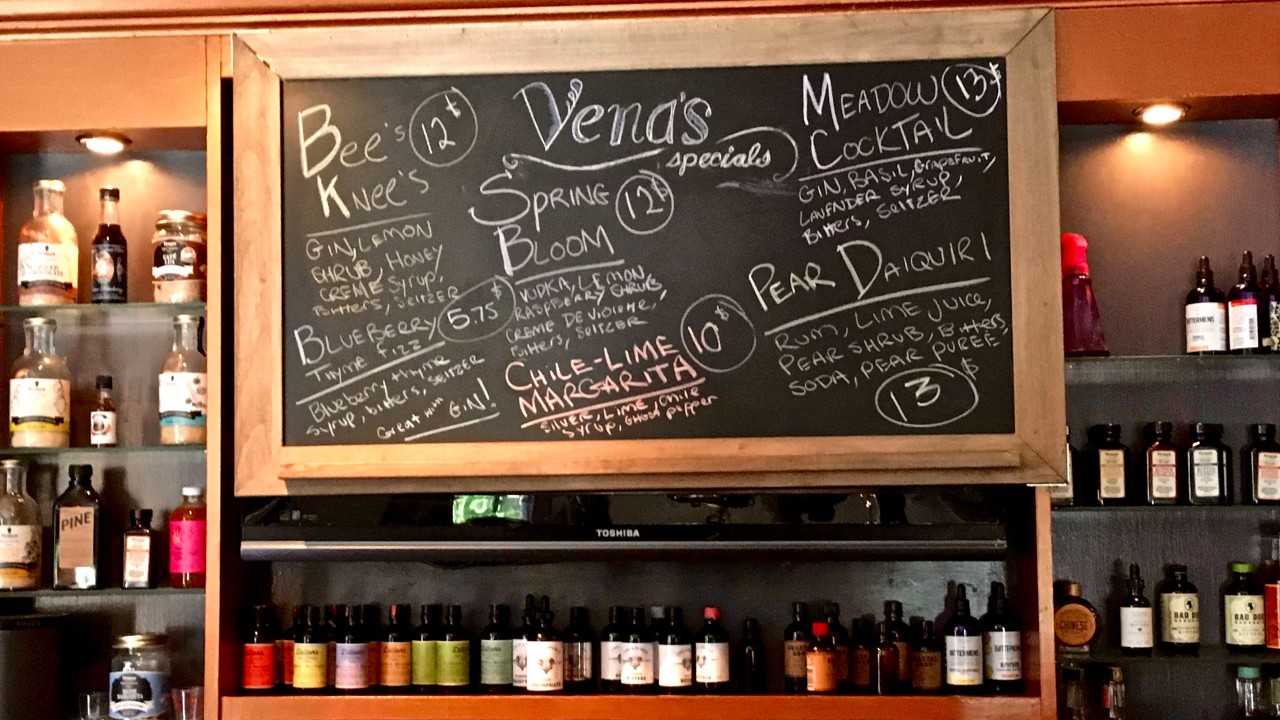 Vena's
specials
Bee's
Knee's
12$
GIN, LEMON
SHRUB, HONEY
CREME SYRUP,
BITTERS, SEITZER
BLUEBERRY
Thyme Fizz
5.75$
Blueberry thyme
syrup, bitters, SEITZER
Great with GIN!
SPRING
BLOOM
12$
VODKA, LEMON
RASPBERRY SHRUB,
CREME DE VIOLETTE,
BITTERS, SEITZER
CHILE-LIME
MARGARITA
10$
SILVER, LIME, CHILE
SYRUP, GHOST PEPPER
MEADOW
COCKTAIL
13$
GIN, BASIL, GRAPEFRUIT,
LAVENDER SYRUP,
BITTERS, SEITZER
PEAR DAIQUIRI
RUM, LIME JUICE,
PEAR SHRUB, BITTERS,
SODA, PEAR PUREE
13$
TOSHIBA
PINE
BITTERMENS
BITTERMENS
CHINESE
BAD DOG
BAD DOG